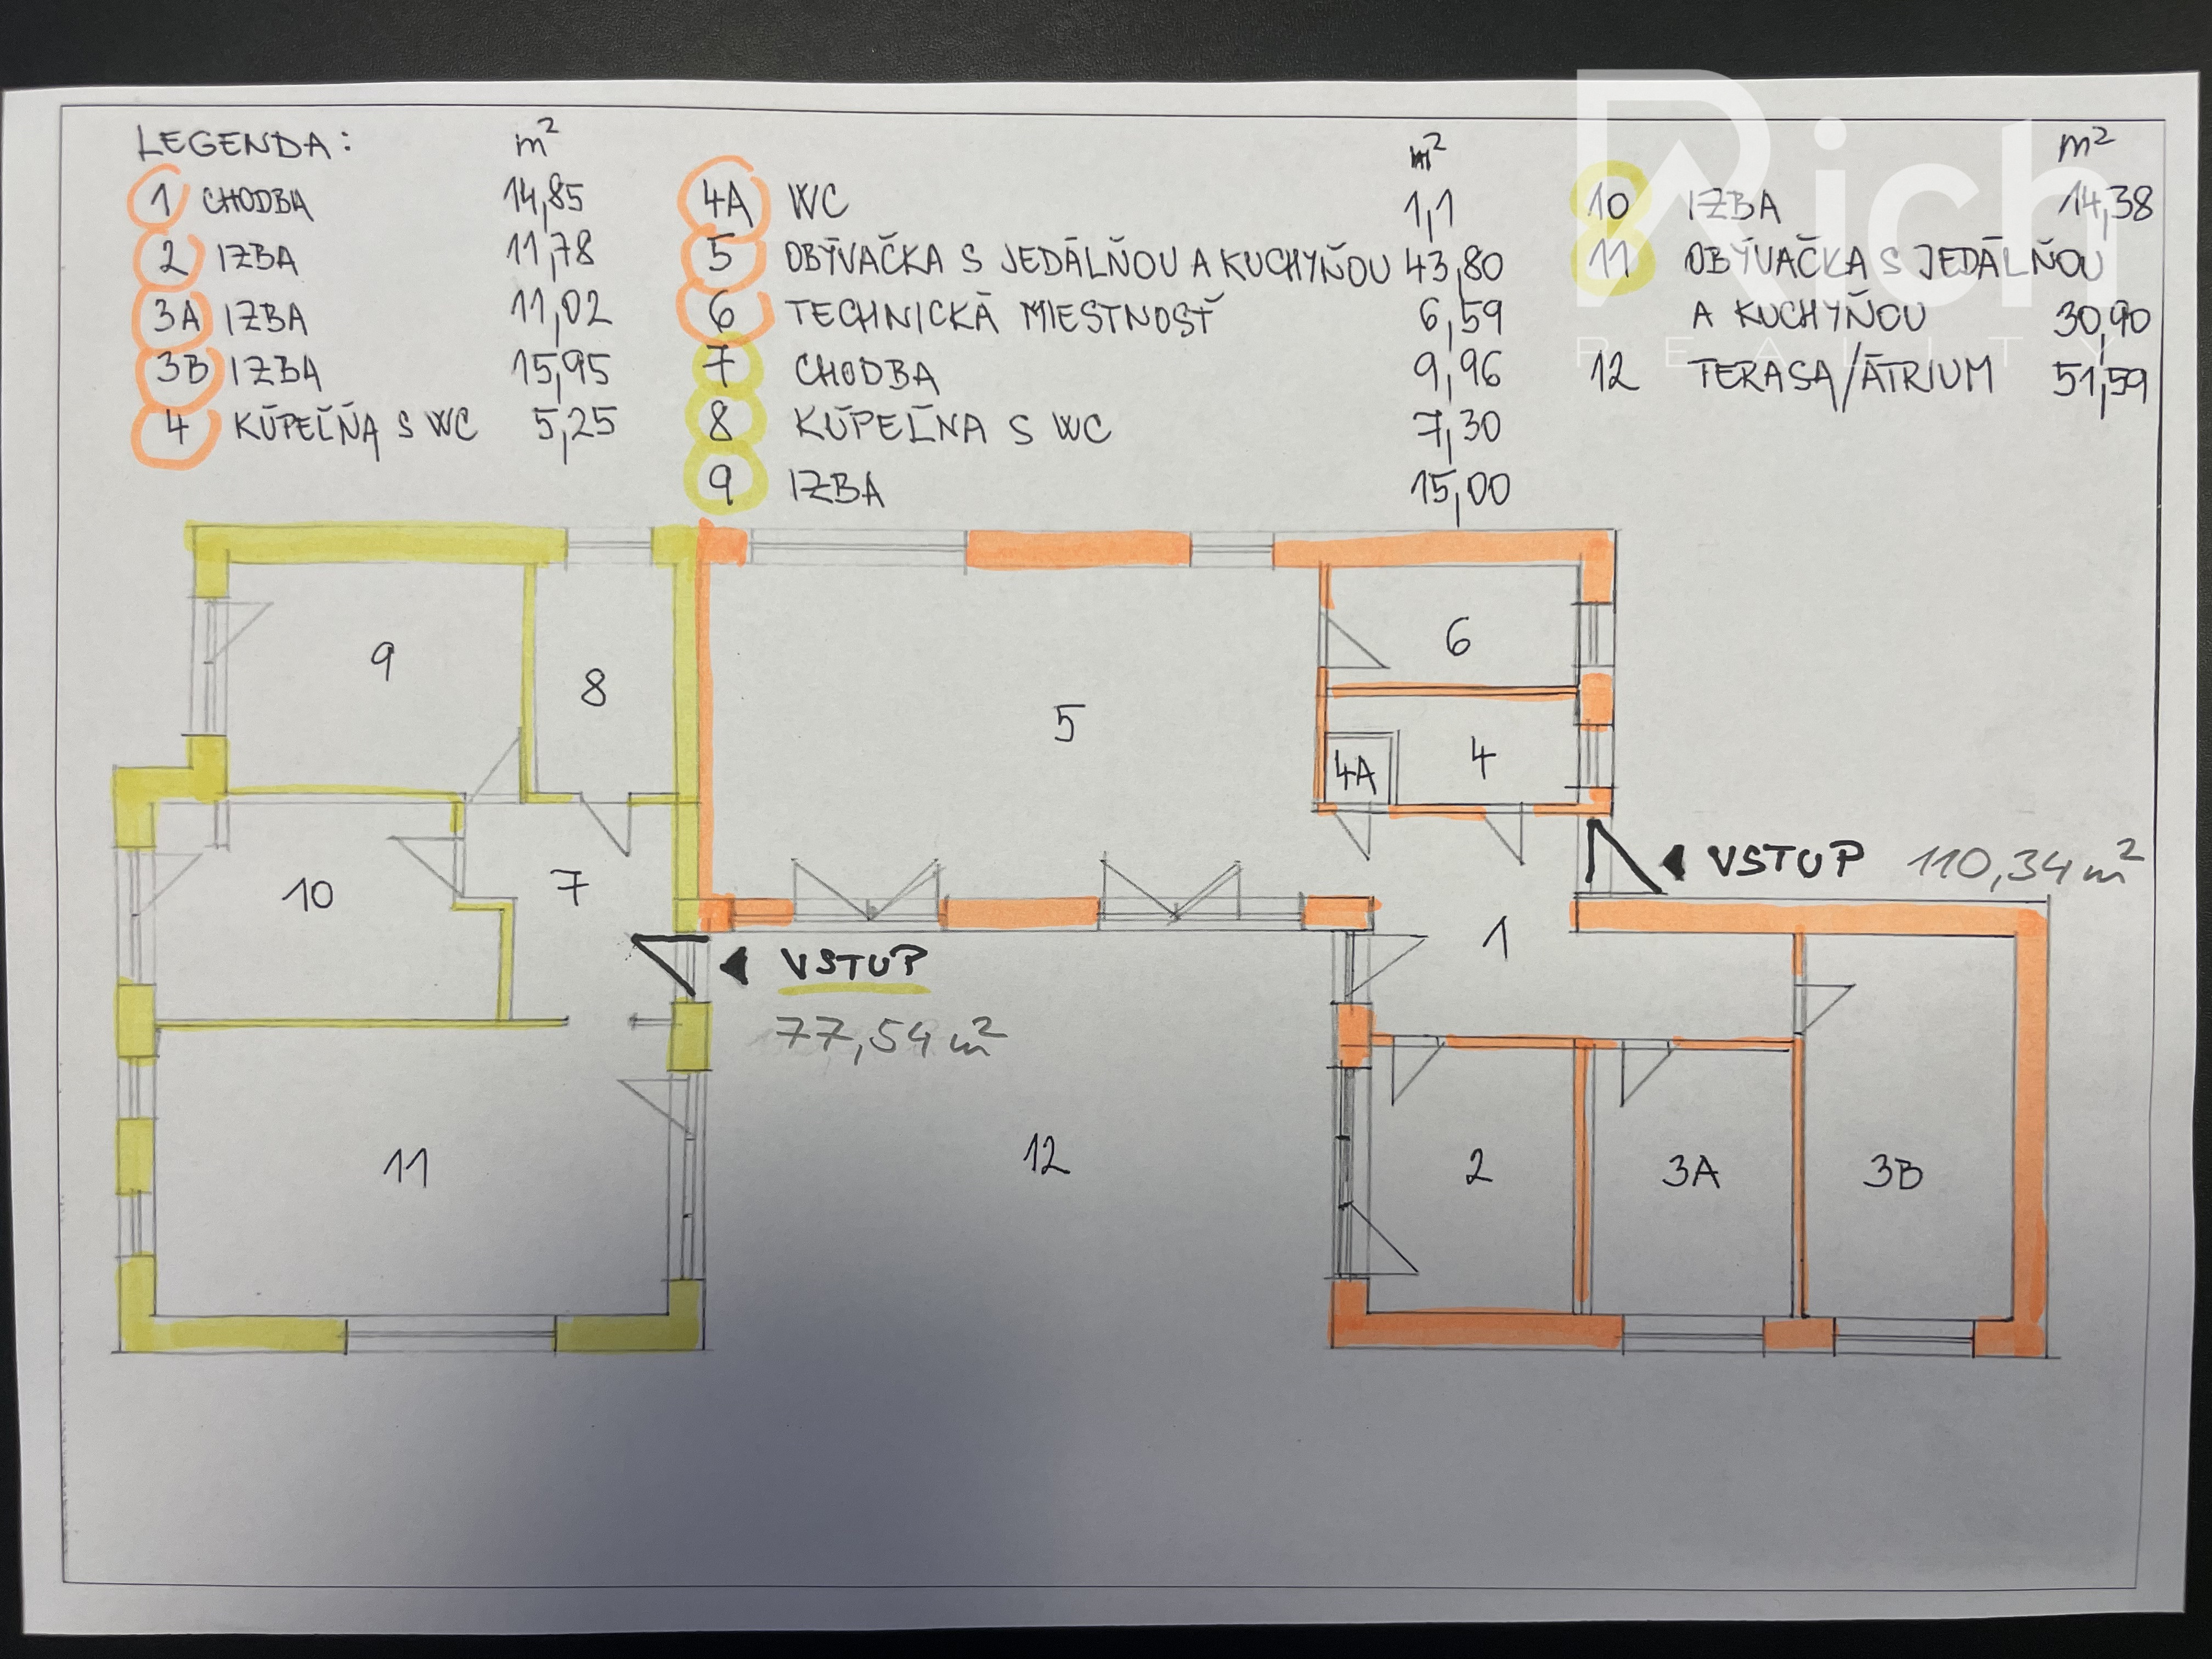 LEGENDA: m²
1 CHODBA 14,85
2 IZBA 11,78
3A IZBA 11,02
3B IZBA 15,95
4 KÚPEĽŇA S WC 5,25
m²
4A WC 1,1
5 OBÝVAČKA S JEDÁLŇOU A KUCHYŇOU 43,80
6 TECHNICKÁ MIESTNOSŤ 6,59
7 CHODBA 9,96
8 KÚPEĽŇA S WC 7,30
9 IZBA 15,00
m²
10 IZBA 14,38
11 OBÝVAČKA S JEDÁLŇOU
A KUCHYŇOU 30,90
12 TERASA/ÁTRIUM 51,59
Rich
REALITY
9
8
5
6
4A
4
10
7
1
VSTUP 110,34 m²
VSTUP
77,54 m²
11
12
2
3A
3B